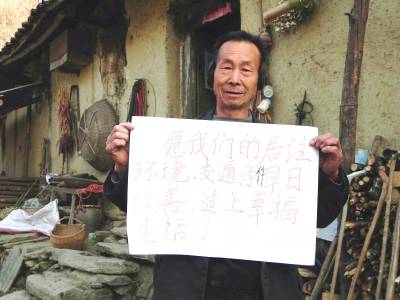 愿我们的居住
环境、交通条件早日
改善、过上幸福
生活！